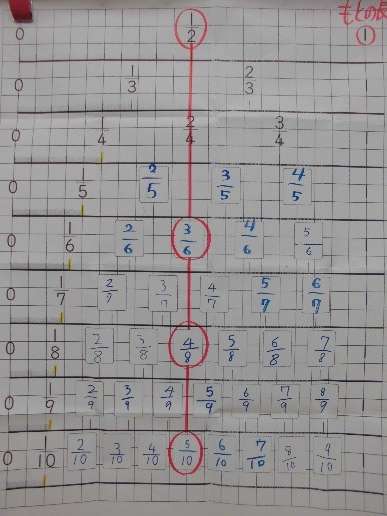 もとの長
0 1/2 1
0 1/3 2/3
0 1/4 2/4 3/4
0 1/5 2/5 3/5 4/5
0 1/6 2/6 3/6 4/6 5/6
0 1/7 2/7 3/7 4/7 5/7 6/7
0 1/8 2/8 3/8 4/8 5/8 6/8 7/8
0 1/9 2/9 3/9 4/9 5/9 6/9 7/9 8/9
0 1/10 2/10 3/10 4/10 5/10 6/10 7/10 8/10 9/10